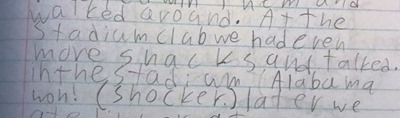 walked around. At the
stadium club we had even
more snacks and talked.
in the stadium Alabama
won! (shocker.) later we